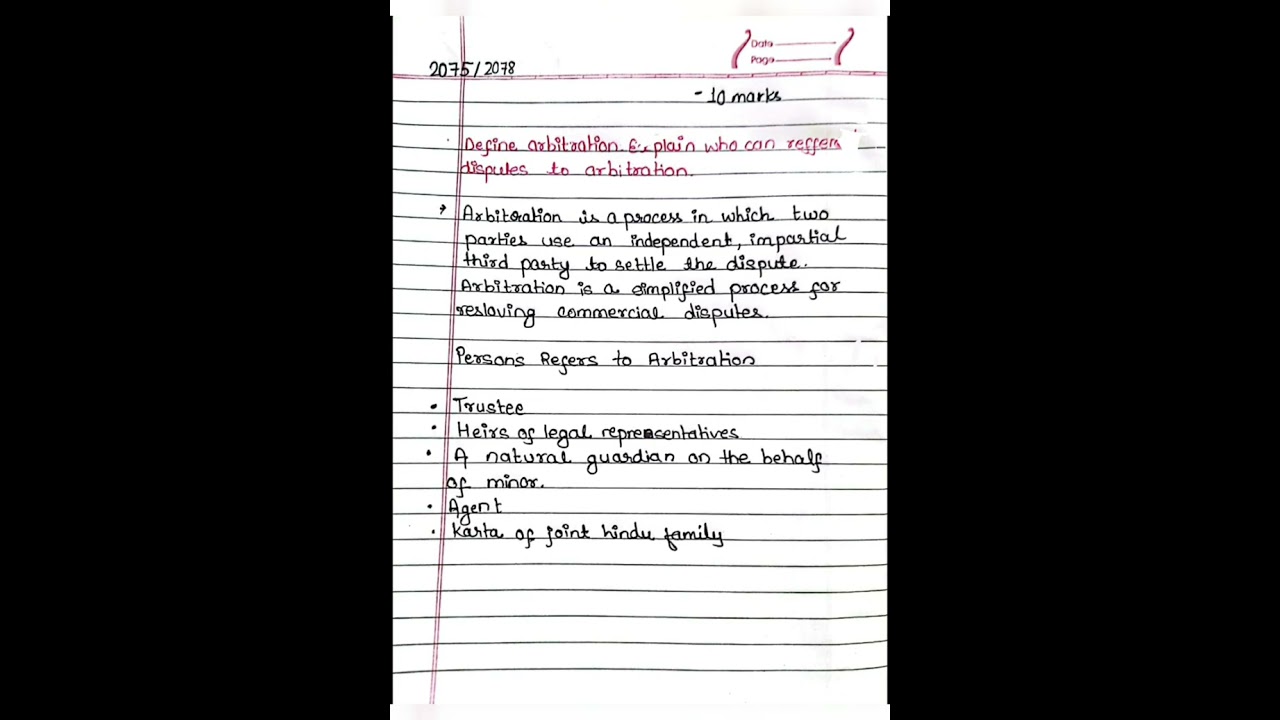 Date
Page
2075/2078
- 10 marks
Define arbitration. Explain who can reffers
disputes to arbitration.
→ Arbitration is a process in which two
parties use an independent, impartial
third party to settle the dispute.
Arbitration is a simplified process for
resloving commercial disputes.
Persons Refers to Arbitration
• Trustee
• Heirs of legal representatives
• A natural guardian on the behalf
of minor.
• Agent
• Karta of joint hindu family